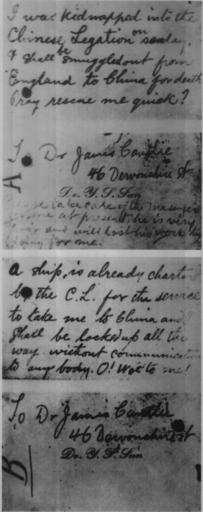 I was kidnapped into the
Chinese Legation on sunday,
& shall be smuggled out from
England to China for death.
Pray rescue me quick?
To Dr James Cantlie
46 Devonshire St
A
Dr. Y. S. Sun
Please take care of the messenger
for me at present, he is very
poor and will lost his work by
doing for me.
A ship is already charter
by the C. L. for the service
to take me to China and
shall be locked up all the
way without communication
to any body. O! Woe to me!
To Dr James Cantlie
46 Devonshire St
Dr. Y. S. Sun
B